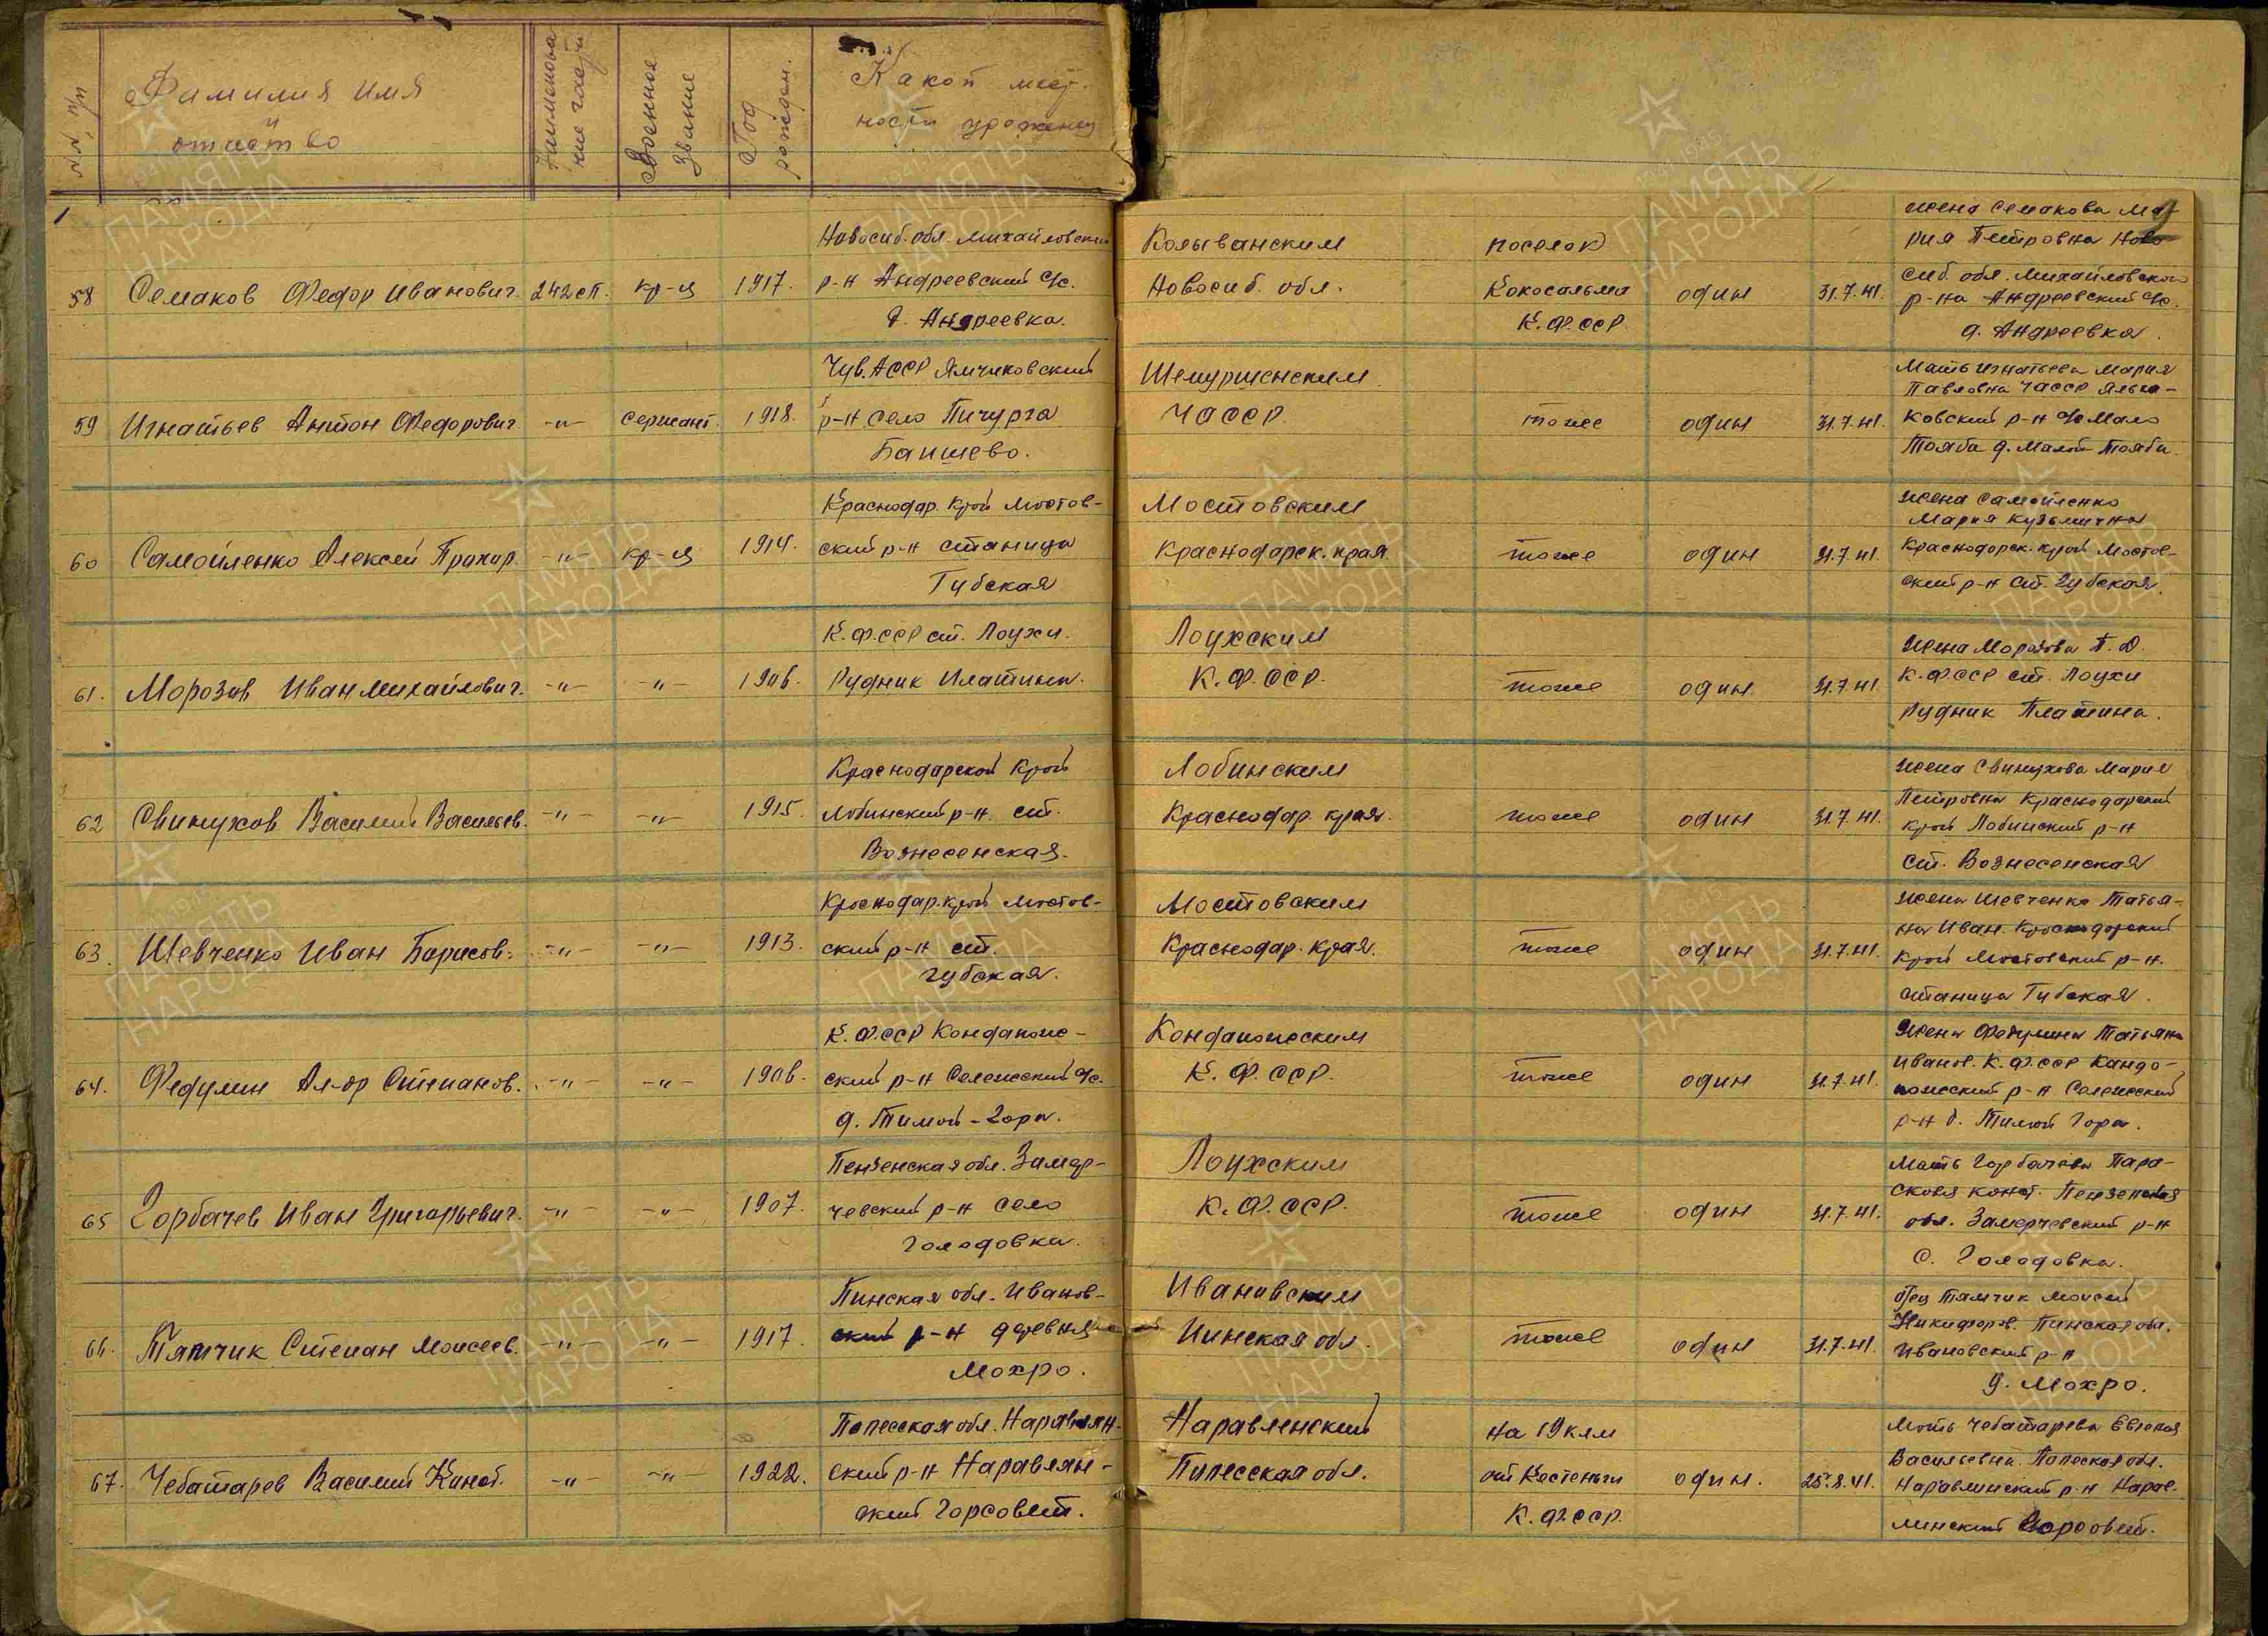 №№ п/п
Фамилия имя
и
отчество
Наименова
ние части
Военное
звание
Год
рожден.
Какой мест-
ности уроженец
58 Семаков Федор Иванович. 242 сп. кр-ц 1917.
Новосиб. обл. Михайловский
р-н Андреевский с/с.
д. Андреевка.
Колыванским
Новосиб. обл.
поселок
Кокосальма
К.Ф.ССР.
один 31.7.41.
жена Семакова Ма-
рия Петровна Ново
сиб. обл. Михайловского
р-на Андреевский с/с.
д. Андреевка.
59 Игнатьев Антон Федорович. -"- сержант. 1918.
Чув.АССР Ялчиковский
р-н село Пичурга
Баишево.
Шемуршенским
ЧАССР.
тоже один 31.7.41.
Мать Игнатьева Мария
Павловна ЧАССР Яльчи-
ковский р-н с/с Мало
Тояба д. Малой Тояби.
60 Самойленко Алексей Прохор. -"- кр-ц 1914.
Краснодар. край Мостов-
ский р-н станица
Губская
Мостовским
Краснодарск. края
тоже один 31.7.41.
жена Самойленко
Мария Кузьминична
Краснодарск. край Мостов-
ский р-н ст. Губская.
61. Морозов Иван Михайлович. -"- -"- 1906.
К.Ф.ССР ст. Лоухи.
Рудник Платина.
Лоухским
К.Ф.ССР.
тоже один 31.7.41.
жена Морозова П.Д.
К.Ф.ССР ст. Лоухи
рудник Платина.
62 Свинухов Василий Васильев. -"- -"- 1915.
Краснодарской край
Лобинский р-н. ст.
Вознесенская.
Лобинским
Краснодар. края.
тоже один 31.7.41.
жена Свинухова Мария
Петровна Краснодарский
край Лобинский р-н
ст. Вознесенская
63. Шевченко Иван Борисов. -"- -"- 1913.
Краснодар. край Мостов-
ский р-н ст.
Губская.
Мостовским
Краснодар. края.
тоже один 31.7.41.
жена Шевченко Татья-
на Иван. Краснодарский
край Мостовский р-н.
станица Губская.
64. Федулин Ал-др Степанов. -"- -"- 1906.
К.Ф.ССР Кондапож-
ский р-н Сележский с/с.
д. Тимой-Гора.
Кондапожским
К.Ф.ССР.
тоже один 31.7.41.
жена Федулина Татьяна
Иванов. К.Ф.ССР Кандо-
пожский р-н Сележский
р-н д. Тимой Гора.
65 Горбачев Иван Григорьевич. -"- -"- 1907.
Пензенская обл. Замер-
чевский р-н село
Голодовка.
Лоухским
К.Ф.ССР.
тоже один 31.7.41.
Мать Горбачева Пара-
сковя конст. Пензенская
обл. Замерчевский р-н
с. Голодовка.
66. Тямчик Степан Моисеев. -"- -"- 1917.
Пинская обл. Иванов-
ский р-н деревня
Мохро.
Ивановским
Пинская обл.
тоже один 31.7.41.
Отец Тямчик Моисей
Никифоров. Пинская обл.
Ивановский р-н
д. Мохро.
67. Чебатарев Василий Канот. -"- -"- 1922.
Полесская обл. Наравлян-
ский р-н Наравлян-
ский Горсовет.
Наравленский
Полесская обл.
на 19 клм
от Кестеньги
К.Ф.ССР.
один. 25.8.41.
Мать Чебатарева Евгения
Васильевна. Полеская обл.
Наравлинский р-н Нарав-
линский Горсовет.
ПАМЯТЬ
НАРОДА